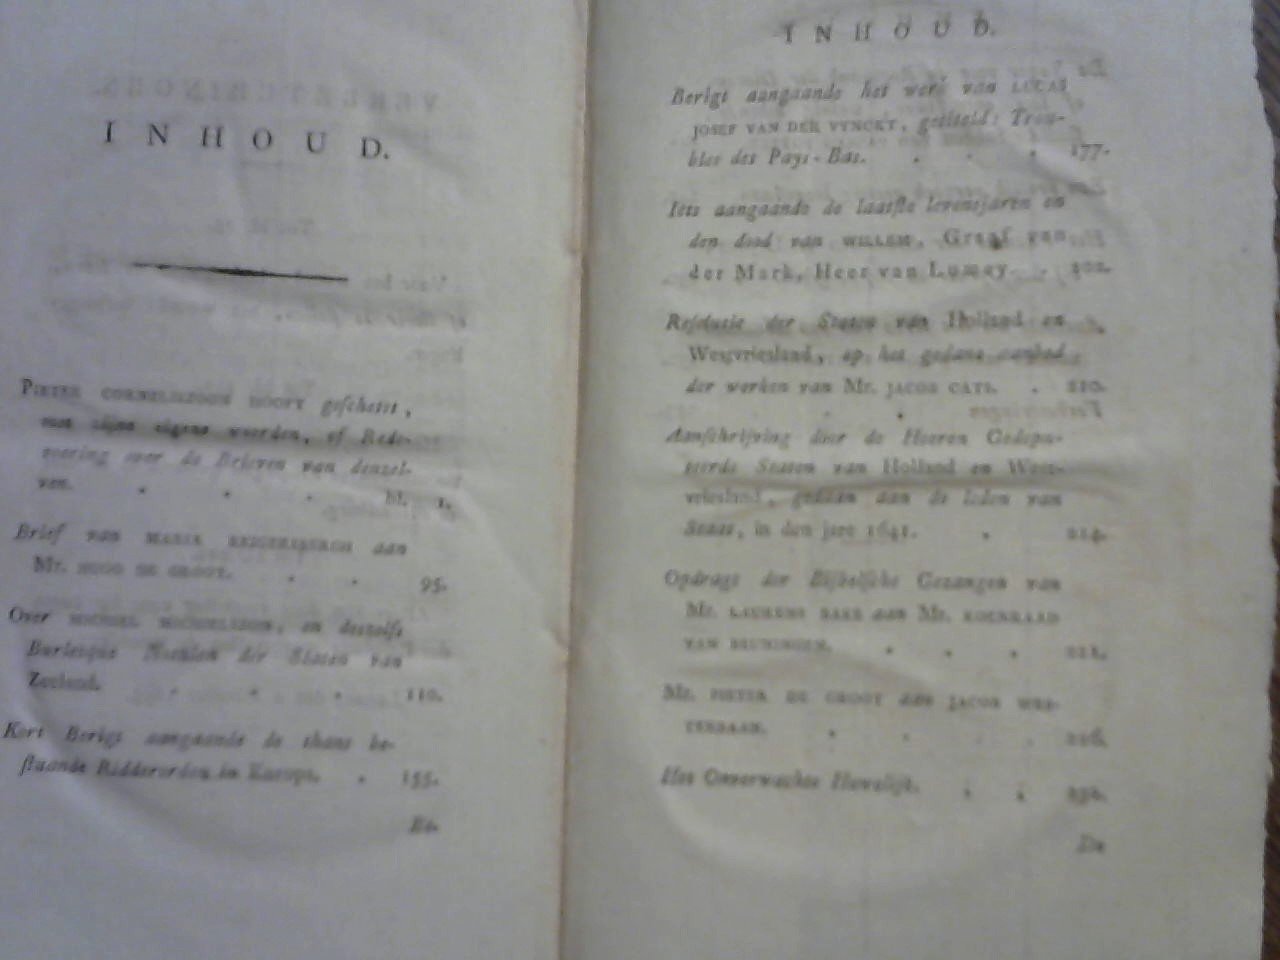 INHOUD.
PIETER CORNELISZOON HOOFT geschetst,
met zijne eigene woorden, of Rede-
voering over de Brieven van denzel-
ven. . . . bl. 1.
Brief van MARIA REIGERSBERGH aan
Mr. HUGO DE GROOT. . . 95.
Over MICHIEL MICHIELSZON, en deszelfs
Burlesque Notulen der Staten van
Zeeland. . . . 110.
Kort Berigt aangaande de thans be-
staande Ridderorden in Europa. . 155.
Be-
INHOUD.
Berigt aangaande het werk van LUCAS
JOSEF VAN DER VYNCKT, getiteld: Trou-
bles des Pays-Bas. . . . 177.
Iets aangaande de laatste levensjaren en
den dood van WILLEM, Graaf van
der Mark, Heer van Lumey. . 202.
Resolutie der Staten van Holland en
Westvriesland, op het gedane aanbod
der werken van Mr. JACOB CATS. . 210.
Aanschrijving door de Heeren Gedepu-
teerde Staten van Holland en West-
vriesland, gedaan aan de leden van
Staat, in den jare 1641. . 214.
Opdragt der Bijbelsche Gezangen van
Mr. LAURENS BAKE aan Mr. KOENRAAD
VAN BEUNINGEN. . . .
Mr. PIETER DE GROOT aan JACOB WES-
TERBAAN. . . .
Het Onverwachte Huwelijk. . .
De